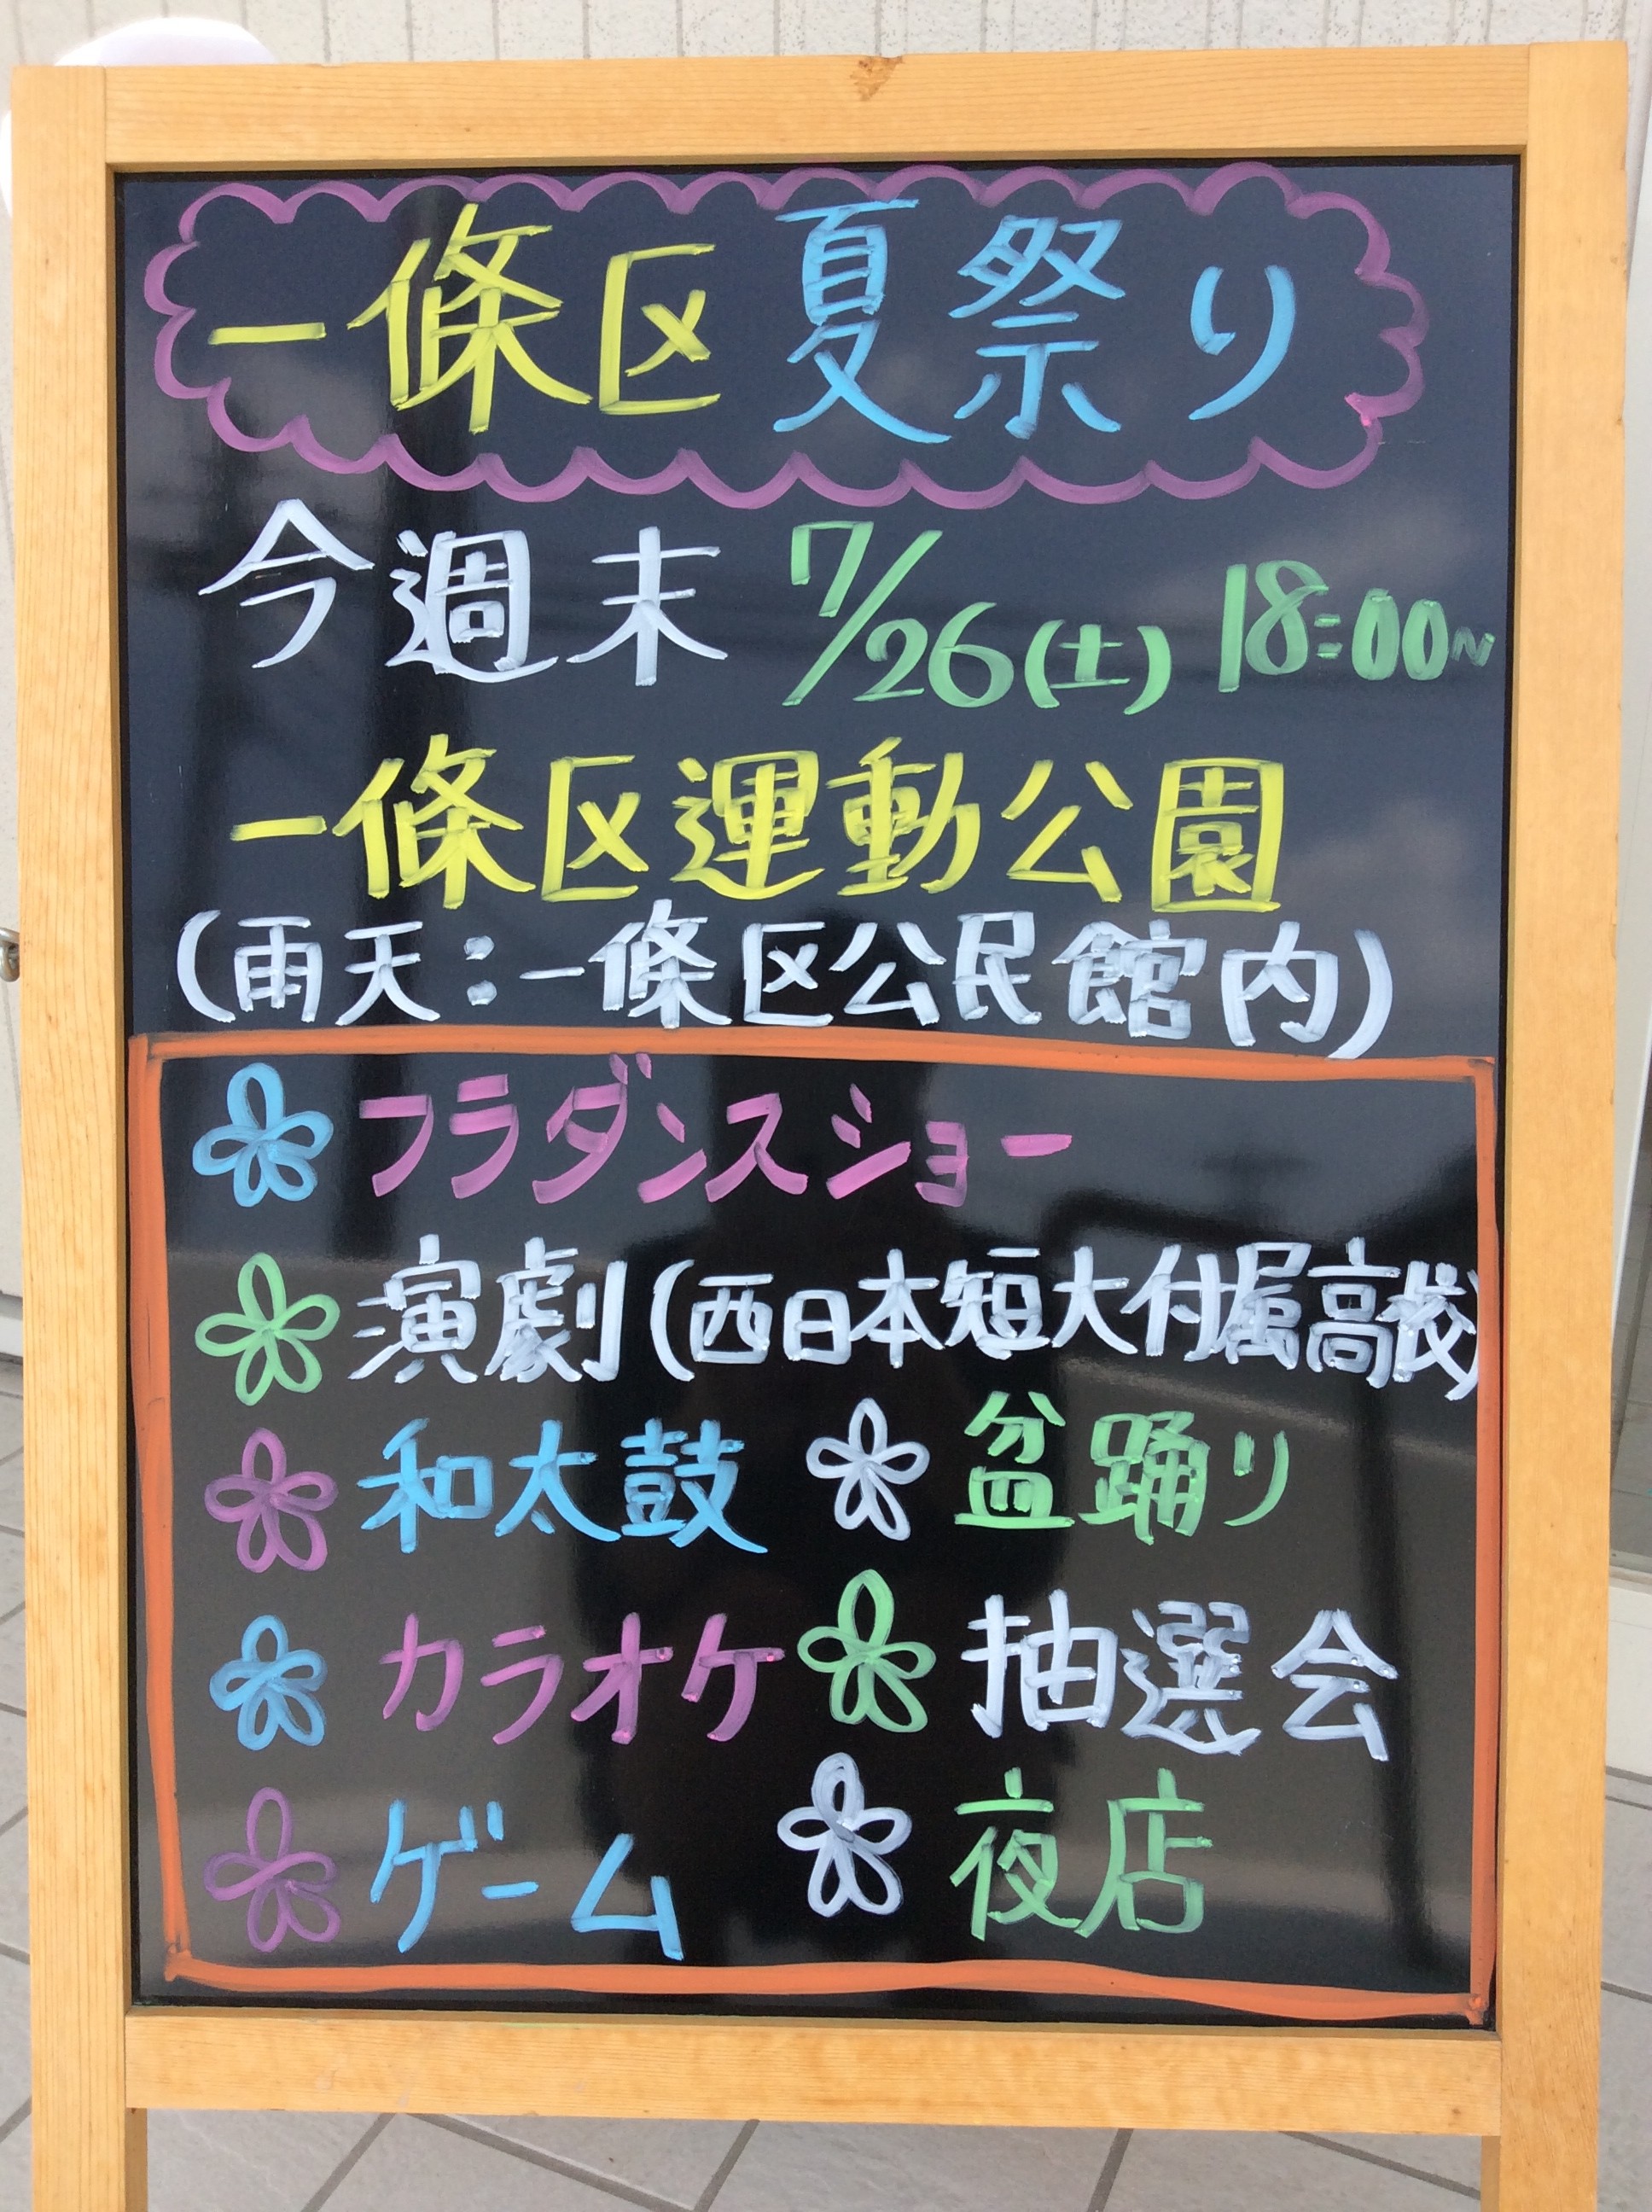 一條区夏祭り
今週末 7/26(土) 18:00~
一條区運動公園
(雨天:一條区公民館内)
フラダンスショー
演劇(西日本短大付属高校)
和太鼓 盆踊り
カラオケ 抽選会
ゲーム 夜店